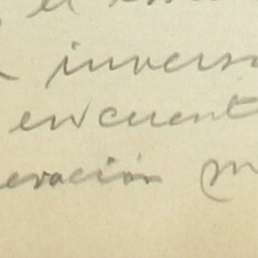 el
invers
encuent
eración m